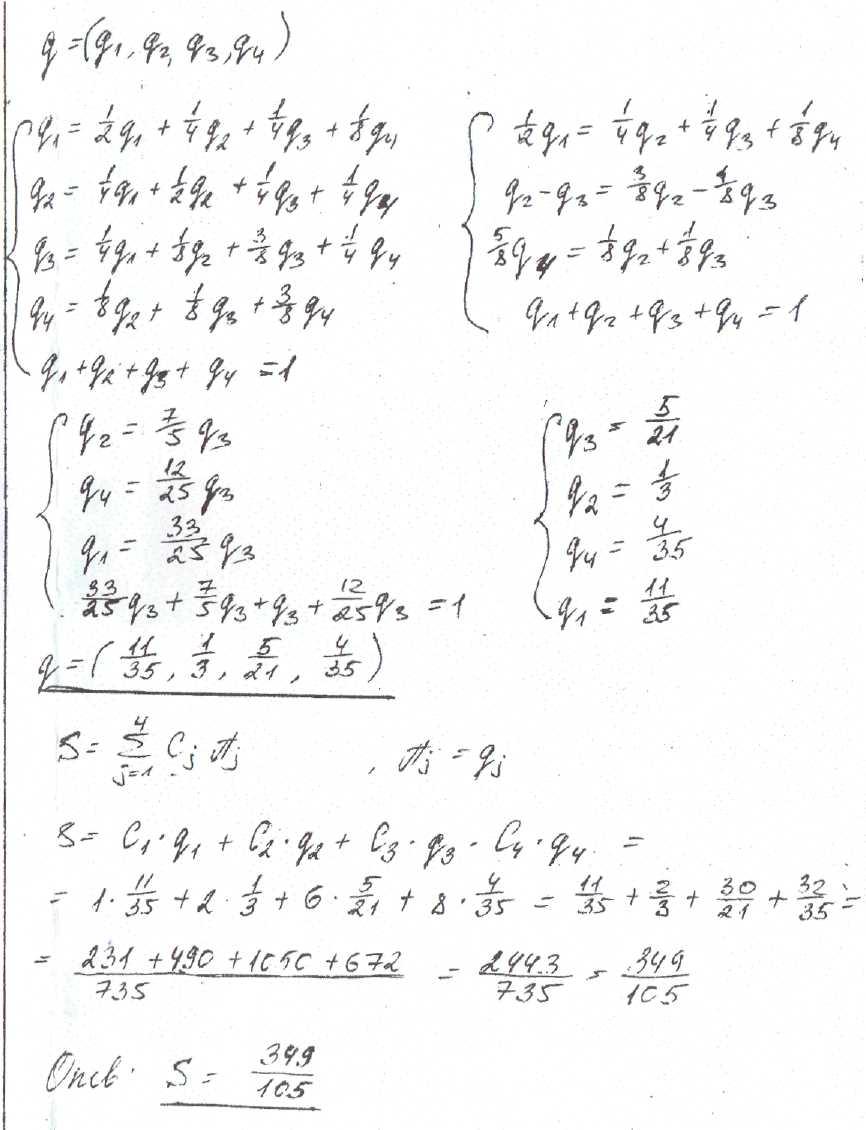 q = (q₁, q₂, q₃, q₄)
q₁ = 1/2 q₁ + 1/4 q₂ + 1/4 q₃ + 1/8 q₄
q₂ = 1/4 q₁ + 1/2 q₂ + 1/4 q₃ + 1/4 q₄
q₃ = 1/4 q₁ + 1/8 q₂ + 3/8 q₃ + 1/4 q₄
q₄ = 1/8 q₂ + 1/8 q₃ + 3/8 q₄
q₁ + q₂ + q₃ + q₄ = 1
1/2 q₁ = 1/4 q₂ + 1/4 q₃ + 1/8 q₄
q₂ - q₃ = 3/8 q₂ - 1/8 q₃
5/8 q₄ = 1/8 q₂ + 1/8 q₃
q₁ + q₂ + q₃ + q₄ = 1
q₂ = 7/5 q₃
q₄ = 12/25 q₃
q₁ = 33/25 q₃
33/25 q₃ + 7/5 q₃ + q₃ + 12/25 q₃ = 1
q₃ = 5/21
q₂ = 1/3
q₄ = 4/35
q₁ = 11/35
q = (11/35, 1/3, 5/21, 4/35)
S = ∑_{j=1}^{4} C_j π_j , π_j = q_j
S = C₁ · q₁ + C₂ · q₂ + C₃ · q₃ - C₄ · q₄ =
= 1 · 11/35 + 2 · 1/3 + 6 · 5/21 + 8 · 4/35 = 11/35 + 2/3 + 30/21 + 32/35 =
= (231 + 490 + 1050 + 672)/735 = 2443/735 = 349/105
S = 349/105